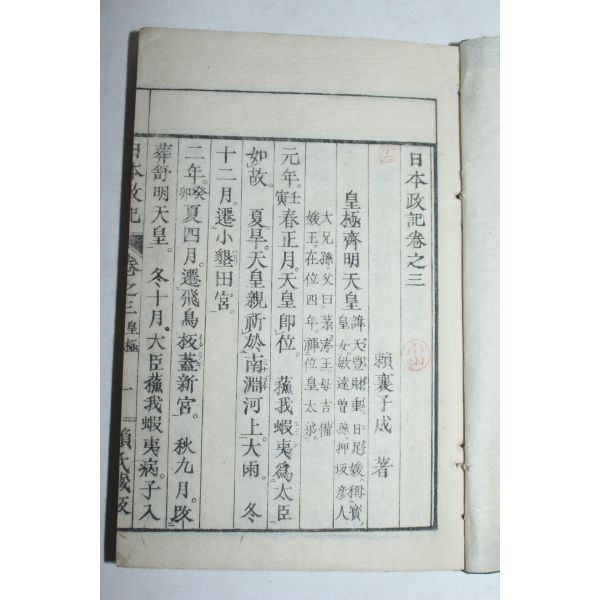 日本政記卷之三
賴襄子成 著
皇極齊明天皇 諱天豐財重日足姬。稱寶
皇女敏達曾孫。押坂彥人
大兄孫。父曰茅渟王。母吉備
姬王。在位四年。禪位皇太弟。
元年。壬寅春正月。天皇卽位。蘇我蝦夷爲太臣
如故。夏。旱。天皇親祈於南淵河上。大雨。冬
十二月。遷小墾田宮。
二年。癸卯夏四月。遷飛鳥板蓋新宮。秋九月。改
葬舒明天皇。冬十月。大臣蘇我蝦夷病。子入
日本政記 卷之三 皇極 一 賴氏藏版
小山